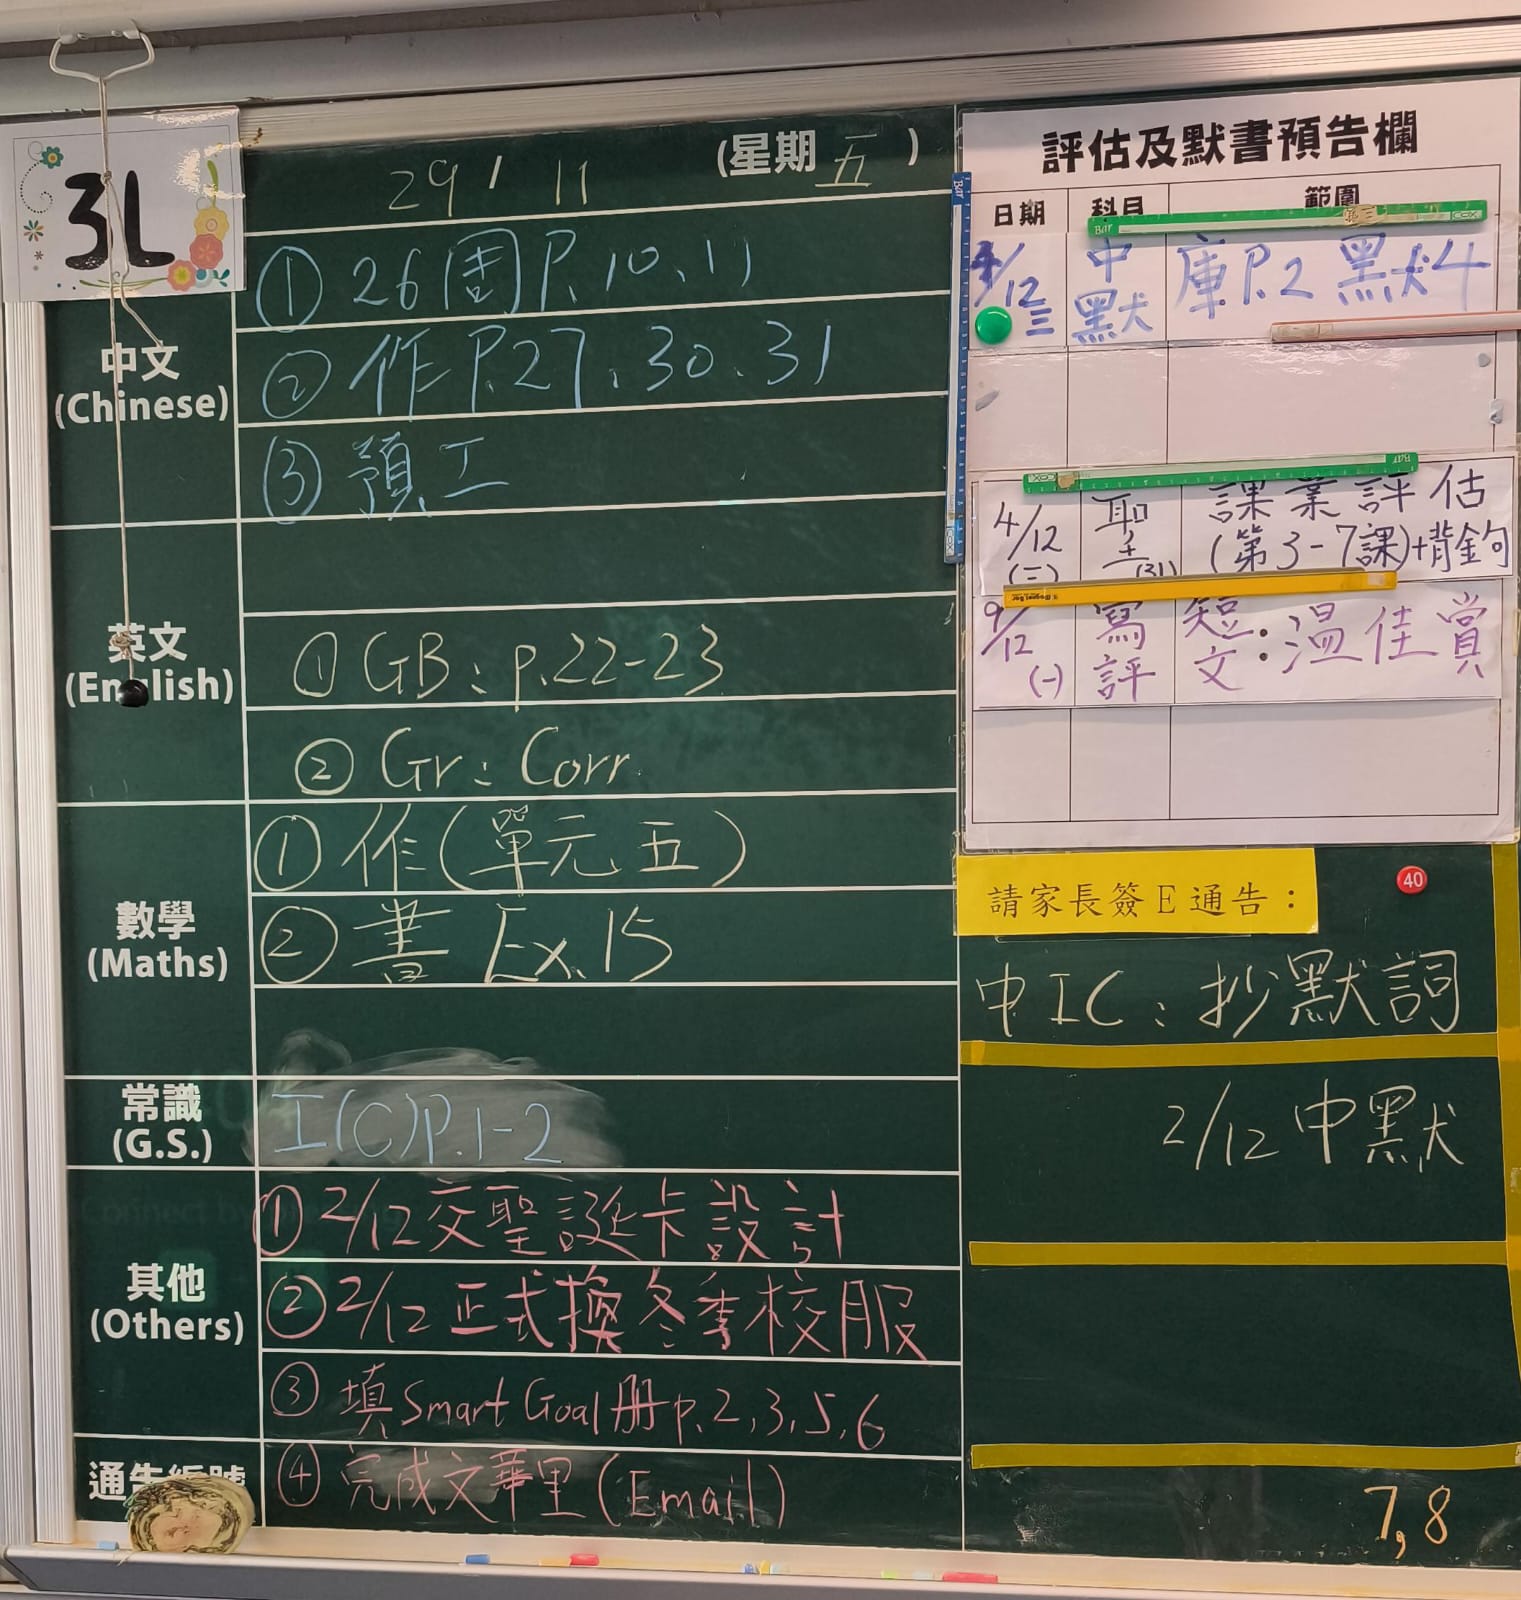 3L
29 / 11 (星期五)
中文
(Chinese)
① 26周P.10、11
② 作P.27、30、31
③ 預工
英文
(English)
① GB: p.22-23
② Gr: Corr.
數學
(Maths)
① 作(單元五)
② 書 Ex.15
常識
(G.S.)
工(C)P.1-2
其他
(Others)
① 2/12交聖誕卡設計
② 2/12正式換冬季校服
③ 填Smart Goal册p.2,3,5,6
通告編號
④ 完成文華里(Email)
評估及默書預告欄
日期 科目 範圍
4/12 三 中默 庫P.2 默4
4/12 (三) 聖 課業評估
(第3-7課)+背金句
9/12 (一) 寫評 短文:溫佳賞
請家長簽E通告:
40
中IC:抄默詞
2/12 中默
7,8